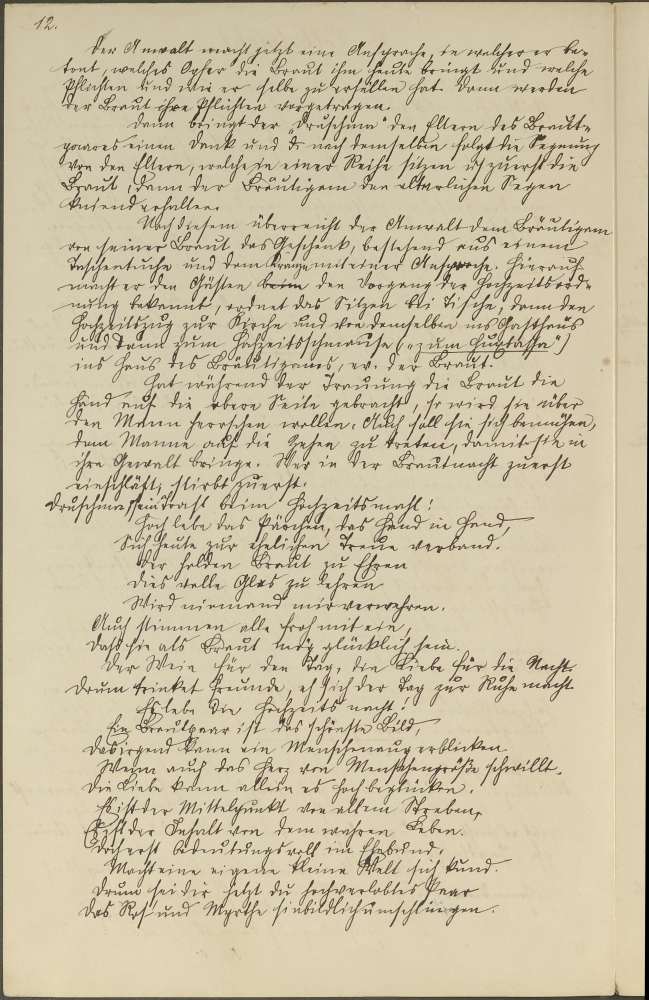 12.
Der Anwalt macht jetzt eine Ansprache, in welcher er be-
tont, welches Opfer die Braut ihm heute bringt und welche
Pflichten und wie er selbe zu erfüllen hat. Dann werden
der Braut ihre Pflichten vorgetragen.
Dann bringt der „Druschma" den Eltern des Braut-
paares einen Dank und nach demselben folgt die Segnung
von den Eltern, welche in einer Reihe sitzen u. zuerst die
Braut, dann der Bräutigam den elterlichen Segen
knieend erhalten.
Nach diesem überreicht der Anwalt dem Bräutigam
von seiner Braut das Geschenk, bestehend aus einem
Taschentuche und dem Kranze mit einer Ansprache. Hierauf
macht er den Gästen den Vorgang der Hochzeitsord-
nung bekannt, ordnet das Sitzen bei Tische, dann den
Hochzeitszug zur Kirche und von demselben ins Gasthaus
und dann zum Hochzeitsschmause („zum
ins Haus des Bräutigams, ev. der Braut.
Hat während der Trauung die Braut die
Hand auf die obere Seite gebracht, so wird sie über
den Mann herrschen wollen. Auch soll sie sich bemühen,
dem Manne auf die Zehen zu treten, damit sie in
ihre Gewalt bringe. Wer in der Brautnacht zuerst
einschläft, stirbt zuerst.
Druschma's ein Toast beim Hochzeitsmahl!
Hoch lebe das Pärchen, das Hand in Hand,
Sich heute zur ehelichen Treue verband.
Der holden Braut zu Ehren
Dies volle Glas zu lehren
Wird niemand mir verwehren.
Auch stimmen alle froh mit ein,
Daß sie als Braut mög glücklich sein.
Der Wein für den Tag, die Liebe für die Nacht
Drum trinket Freunde, eh sich der Tag zur Ruhe macht
Es lebe die Hochzeits nacht!
Ein Brautpaar ist das schönste Bild,
Das irgend kann ein Menschenaug erblicken.
Wenn auch das Herz von Menschengröße schwillt,
Die Liebe kann allein es hoch beglücken.
Es ist der Mittelpunkt von allem Streben,
Es ist der Inhalt von dem wahren Leben.
Doch erst bedeutungsvoll im Ehebund,
Macht eine eigene kleine Welt sich kund.
Drum sei dir jetzt du hochverlobtes Paar
Das Ros' und Myrthe sinbildlich umschlungen.